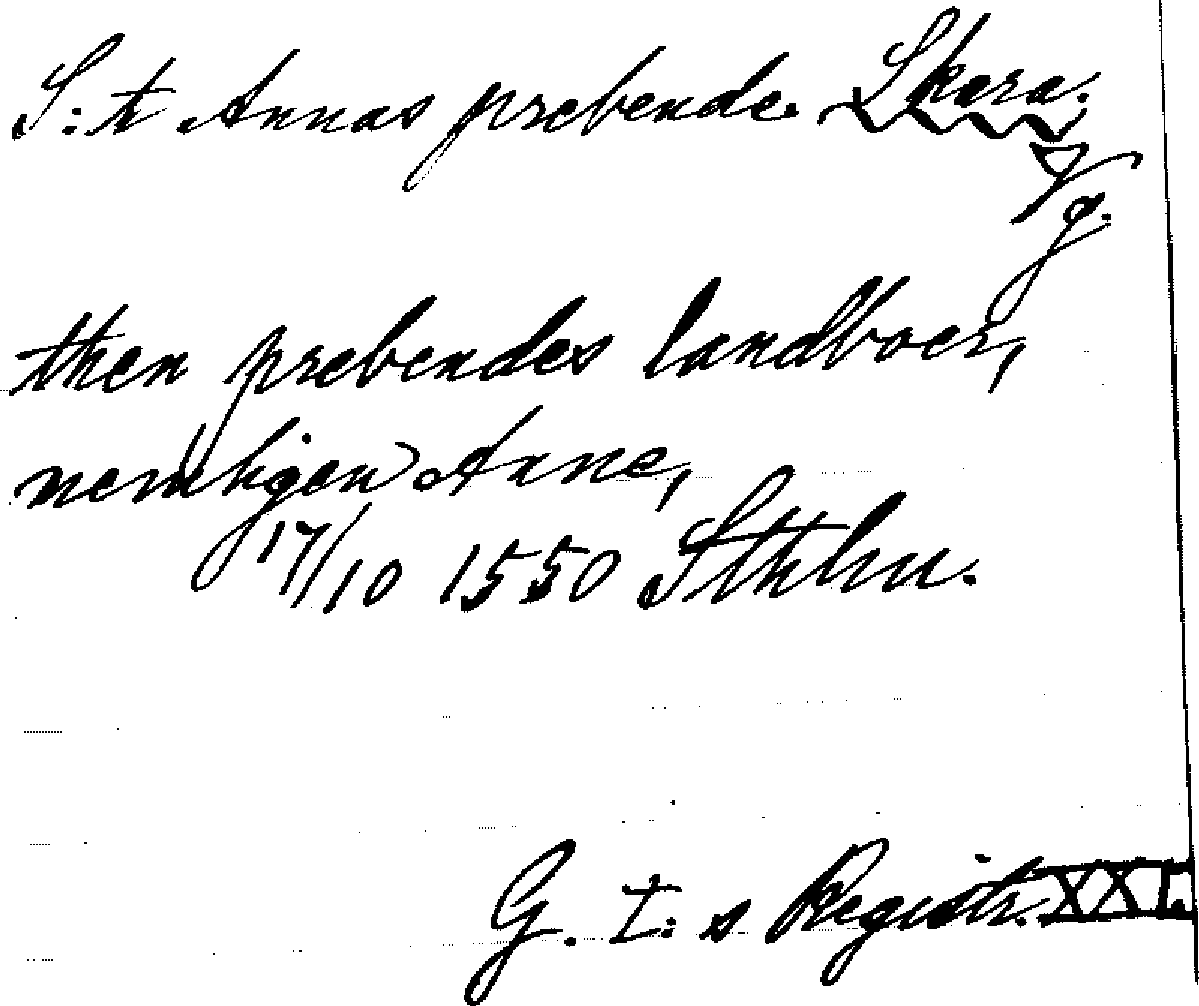 S:t Annas prebende. Skara.
Vg.
then prebendes landboer,
nemligen Anne,
17/10 1550 Sthlm.
G. I:s Registr. XXI.